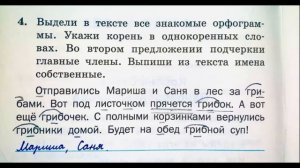 4. Выдели в тексте все знакомые орфограм-
мы. Укажи корень в однокоренных сло-
вах. Во втором предложении подчеркни
главные члены. Выпиши из текста имена
собственные.
Отправились Мариша и Саня в лес за гри-
бами. Вот под листочком прячется грибок. А вот
ещё грибочек. С полными корзинками вернулись
грибники домой. Будет на обед грибной суп!
Мариша, Саня